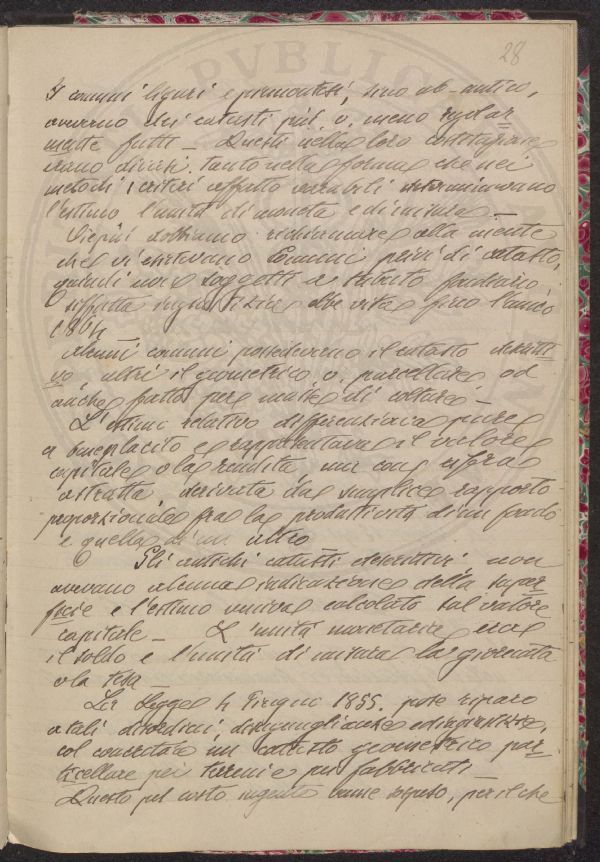 28
I comuni liguri e piemontesi, sino ab-antico,
avevano dei catasti più o meno regolar
mente fatti - Questi nella loro costituzione
erano diversi tanto nella forma che nei
metodi, criteri affatto variabili determinavano
l'estimo l'unità di moneta e di misura -
Di più dobbiamo richiamare alla mente
che vi esistevano Comuni privi di catasto,
quindi non soggetti a tributo fondiario
siffatta ingiustizia ebbe vita fino l'anno
1864
Alcuni comuni possedevano il catasto descritti
vo, altri il geometrico o parcellare, od
anche fatto per masse di colture -
L'estimo relativo differenziava pure
a beneplacito e rappresentava il valore
capitale o la rendita ma con cifra
astratta, derivata dal semplice rapporto
proporzionale fra la produttività di un fondo
e quella di un altro
Gli antichi catasti descrittivi non
avevano alcuna indicazione della super
ficie e l'estimo veniva calcolato sul valore
capitale - L'unità monetaria era
il soldo e l'unità di misura la giornata
o la tesa -
La Legge 4 Giugno 1855 pose riparo
a tali disordini, disuguaglianze ed ingiustizie,
col concretare un catasto geometrico par
ticellare pei terreni e pei fabbricati -
Questo pel costo ingente venne sospeso, per il che